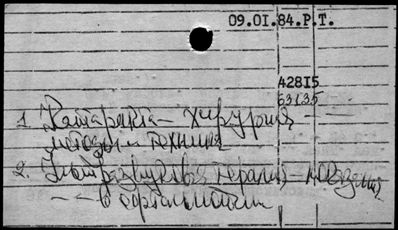 09.01.84.Р.Т.
42815
63135
1. Катаракта - хирургия -
методы и техника
2. Ультразвуковая терапия -
- - в офтальмологии